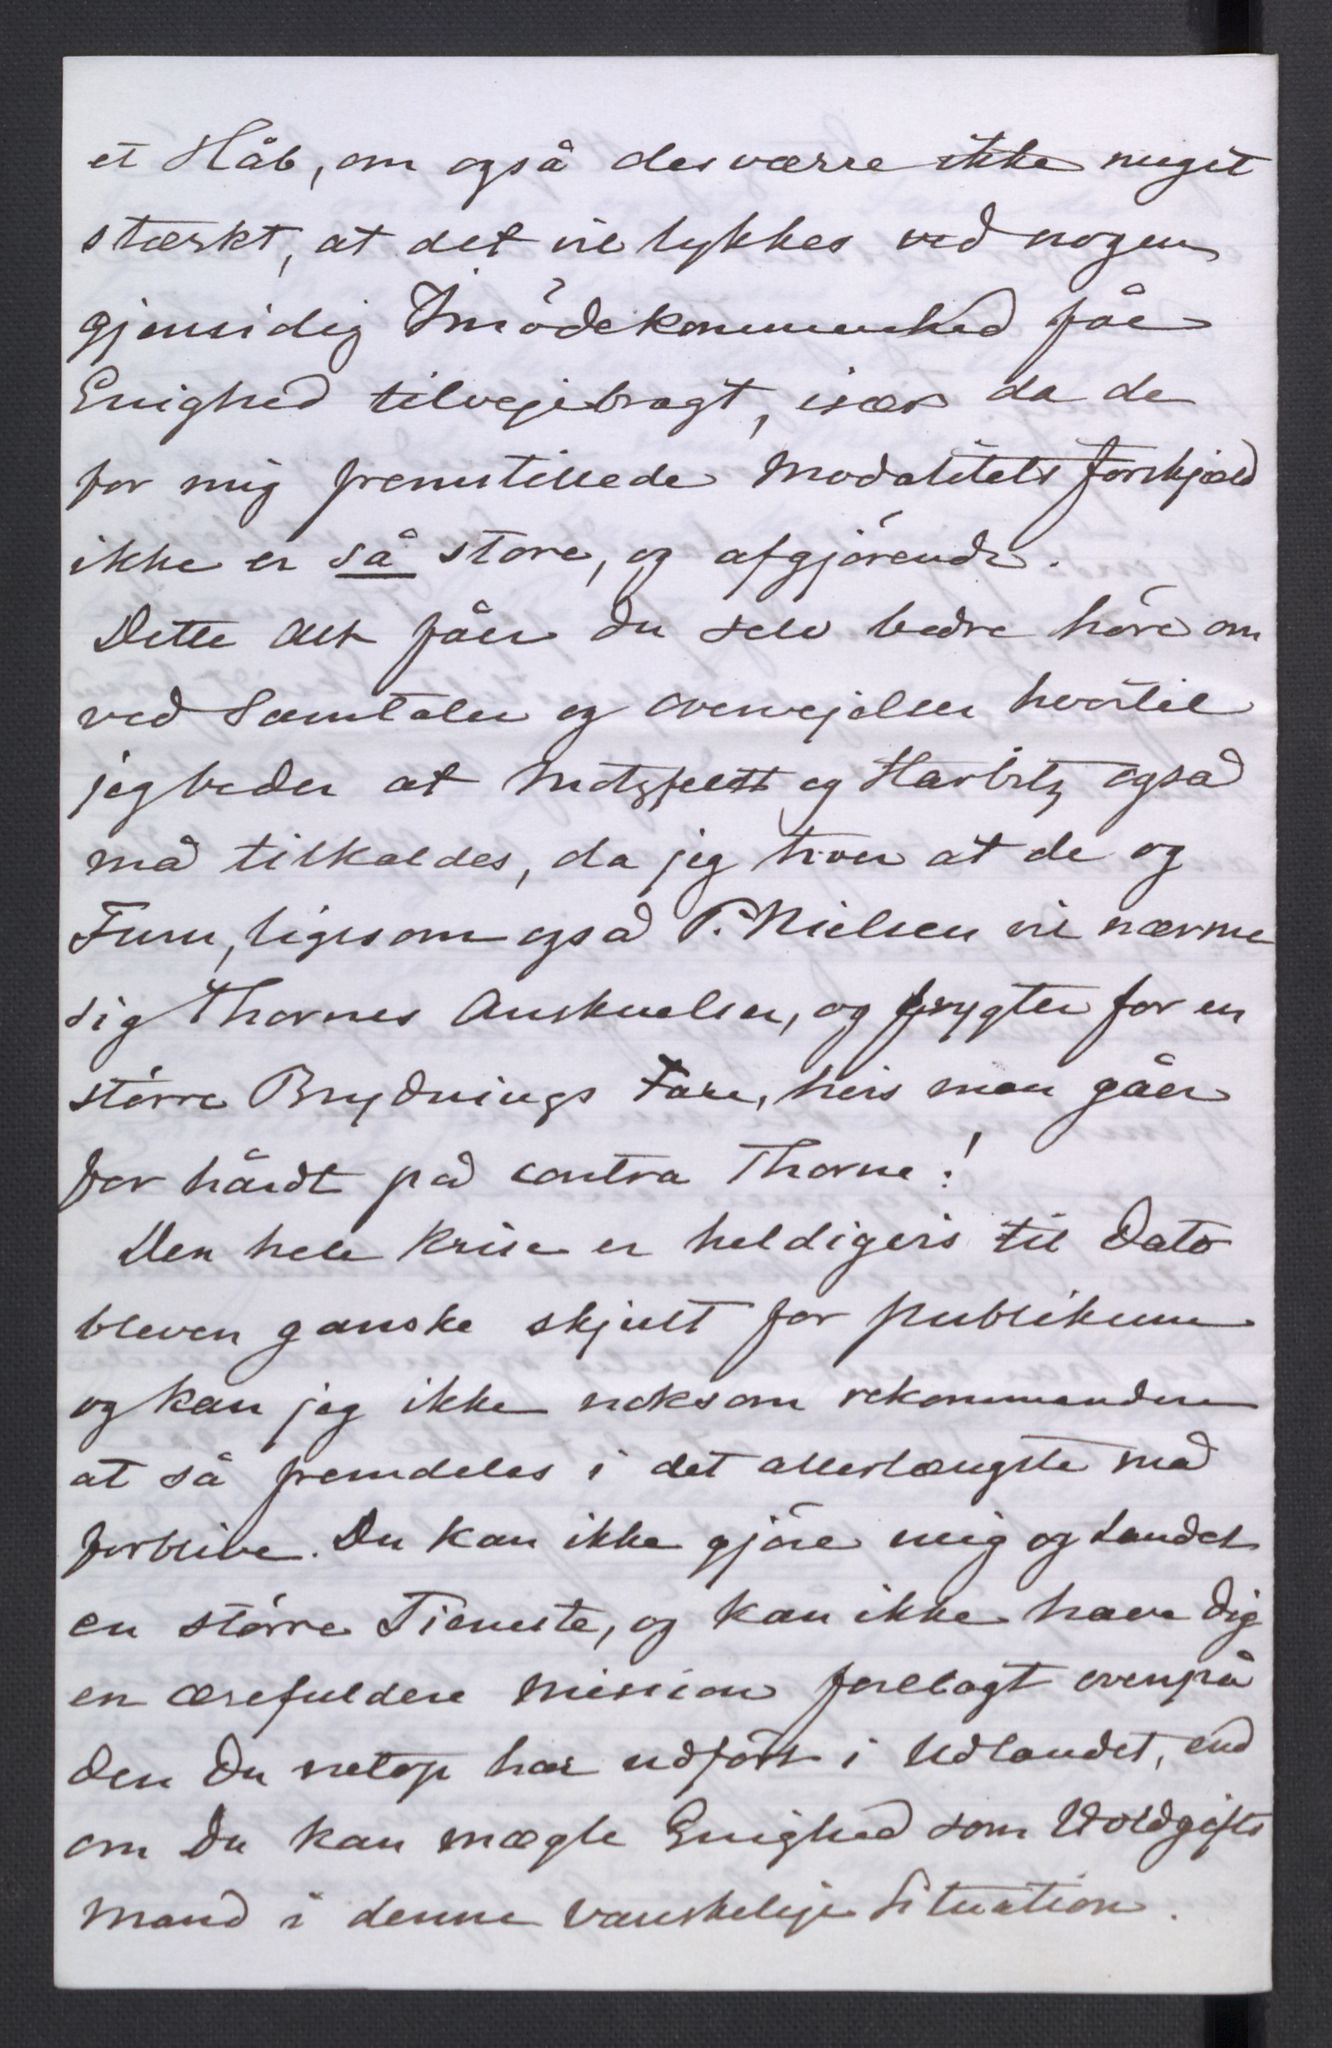 et Håb, om også desværre ikke meget
stærkt, at det vil lykkes ved nogen
gjensidig Imödekommenhed fåe
Enighed tilvejebragt, især da de
for mig fremstillede Modalitets forskjæld
ikke er så store, og afgjörende.
Dette Alt fåer Du selv bedre höre om
ved Samtaler og overvejelser hvortil
jeg beder at Motzfeldt og Harbitz også
må tilkaldes, da jeg troer at de og
Furu, ligesom også P. Nielsen vil nærme
sig Thornes Anskuelser, og frygter for en
större Brydnings Fare, hvis man gåer
for hårdt på contra Thorne!
Den hele Krise er heldigvis til Dato
bleven ganske skjult for Publikum
og kan jeg ikke noksom rekommandere
at så fremdeles i det allerlængste må
forblive. Du kan ikke gjöre mig og Landet
en större Tieneste, og kan ikke have Dig
en ærefuldere Mission forelagt ovenpå
den Du netop har udfört i Udlandet, end
om Du kan mægle Enighed som Voldgifts
Mand i denne vanskelige Situation.